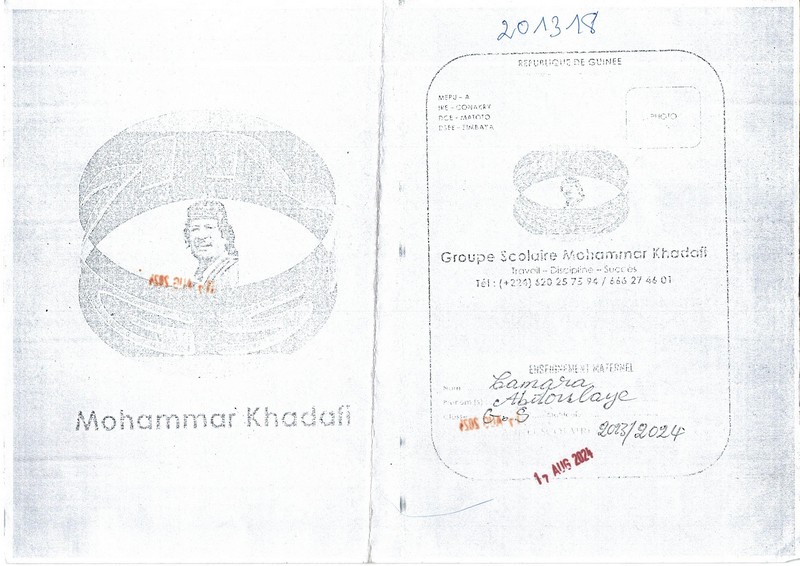 Mohammar Khadafi
201318
REPUBLIQUE DE GUINEE
MEPU - A
IRE - CONAKRY
DCE - MATOTO
DSEE - SIMBAYA
PHOTO
Groupe Scolaire Mohammar Khadafi
Travail - Discipline - Succès
Tél : (+224) 620 25 75 94 / 666 27 46 01
ENSEIGNEMENT MATERNEL
Nom Camara
Prénom(s) Abdoulaye
Classe G.S
2023/2024
17 AUG 2024